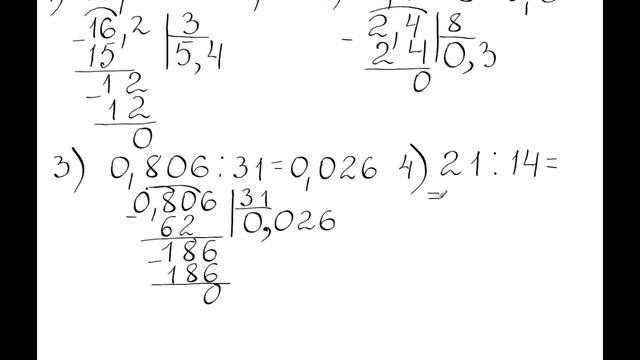 -16,2 | 3
15 | 5,4
-12
12
0
-2,4 | 8
2 4 | 0,3
0
3) 0,806 : 31 = 0,026
-0,806 | 31
62 | 0,026
-186
186
0
4) 21 : 14 =
=